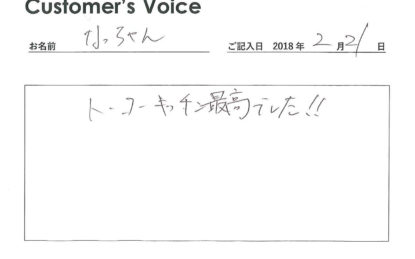 Customer's Voice
お名前 なっちゃん ご記入日 2018 年 2 月 21 日
トーコーキッチン最高でした!!